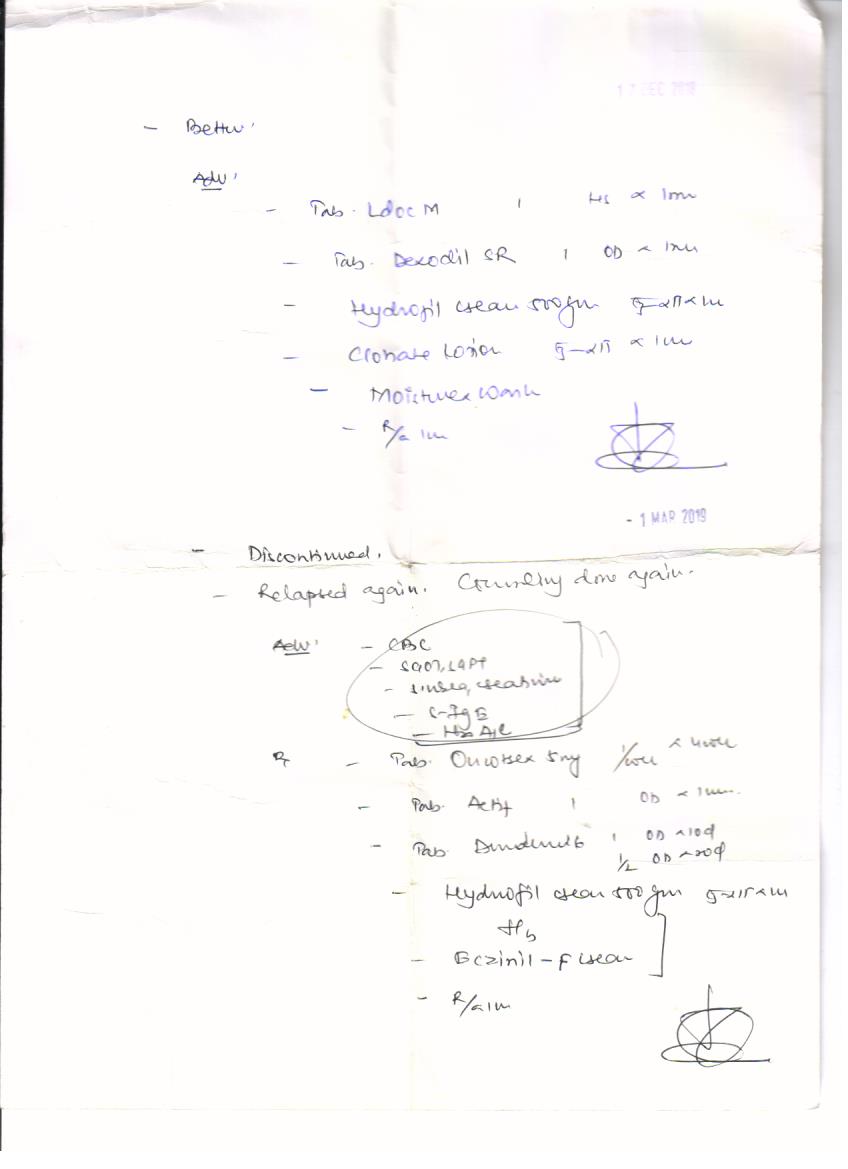 17 DEC 2018
- Better
Adv
- Tab. Ldoc M 1 HS x 1m
- Tab. Dexodil SR 1 OD x 1m
- Hydrofil cream 500gm x 1m
- Clonate Lotion x 1m
- Moisturex Wash
- R/a 1m
- 1 MAR 2019
- Discontinued.
- Relapsed again. Counselling done again.
Adv - CBC
- SGOT, SGPT
- S.Urea, creatinine
- S-IgE
- Hb A1C
R - Tab. 5mg 1/week x 4week
- Tab. 1 OD x 1m
- Tab. 1 OD x 10d
1/2 OD x 20d
- Hydrofil cream 500gm x 1m
- Eczinil-F cream
- R/a 1m